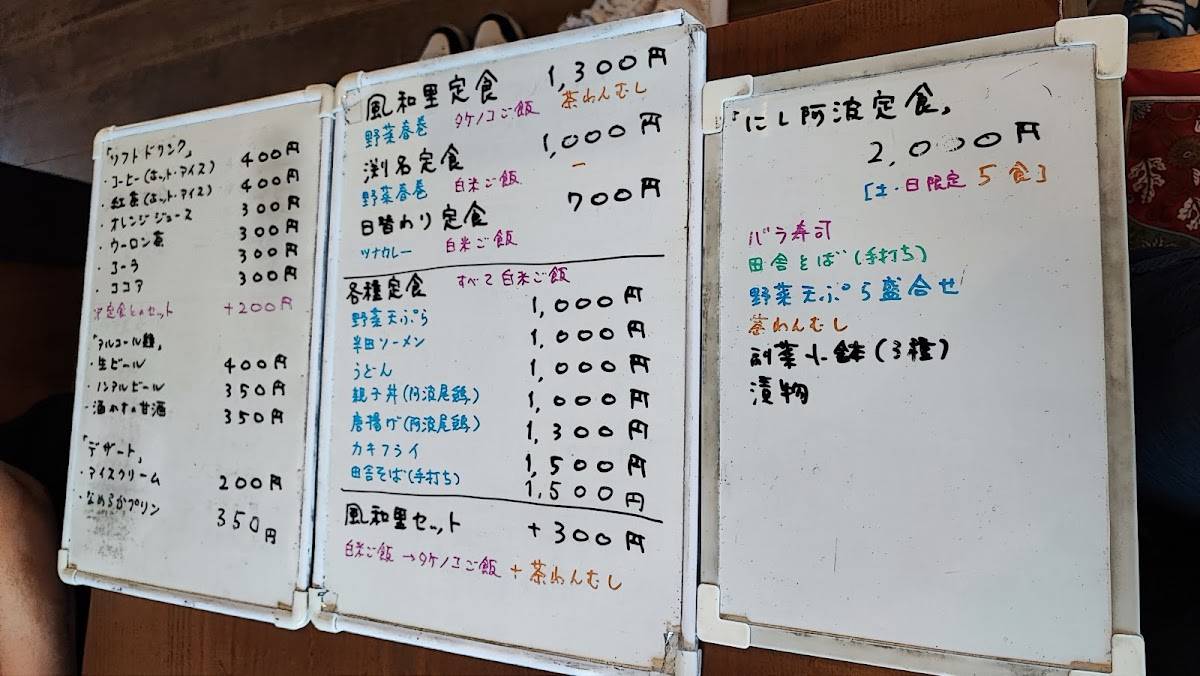 「ソフトドリンク」
・コーヒー(ホット・アイス) 400円
・紅茶(ホット・アイス) 400円
・オレンジジュース 300円
・ウーロン茶 300円
・コーラ 300円
・ココア 300円
※定食とのセット +200円
「アルコール類」
・生ビール 400円
・ノンアルビール 350円
・酒かすの甘酒 350円
「デザート」
・アイスクリーム 200円
・なめらかプリン 350円
風和里定食 1,300円
野菜春巻 タケノコご飯 茶わんむし
渕名定食 1,000円
野菜春巻 白米ご飯 ー
日替わり定食 700円
ツナカレー 白米ご飯
各種定食 すべて白米ご飯
野菜天ぷら 1,000円
半田ソーメン 1,000円
うどん 1,000円
親子丼(阿波尾鶏) 1,000円
唐揚げ(阿波尾鶏) 1,300円
カキフライ 1,500円
田舎そば(手打ち) 1,500円
風和里セット +300円
白米ご飯→タケノコご飯 + 茶わんむし
「にし阿波定食」
2,000円
[土・日限定 5食]
バラ寿司
田舎そば(手打ち)
野菜天ぷら盛合せ
茶わんむし
副菜小鉢(3種)
漬物